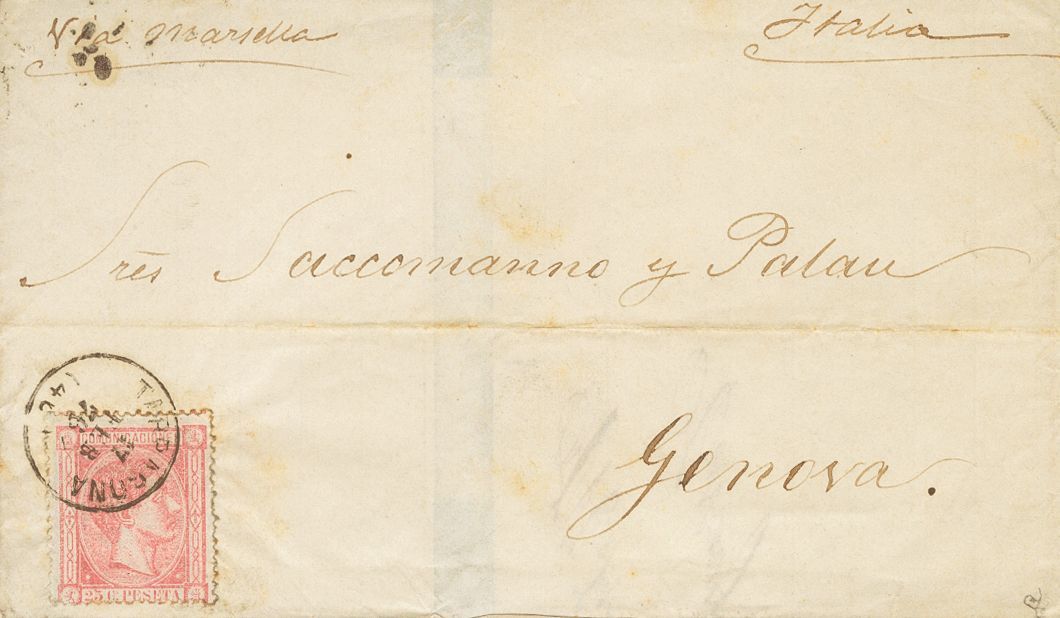 Via Marsella
Italia
Sres Saccomanno y Palau
Genova.
TARRAGONA
COMUNICACIONES
25 C. PESETA